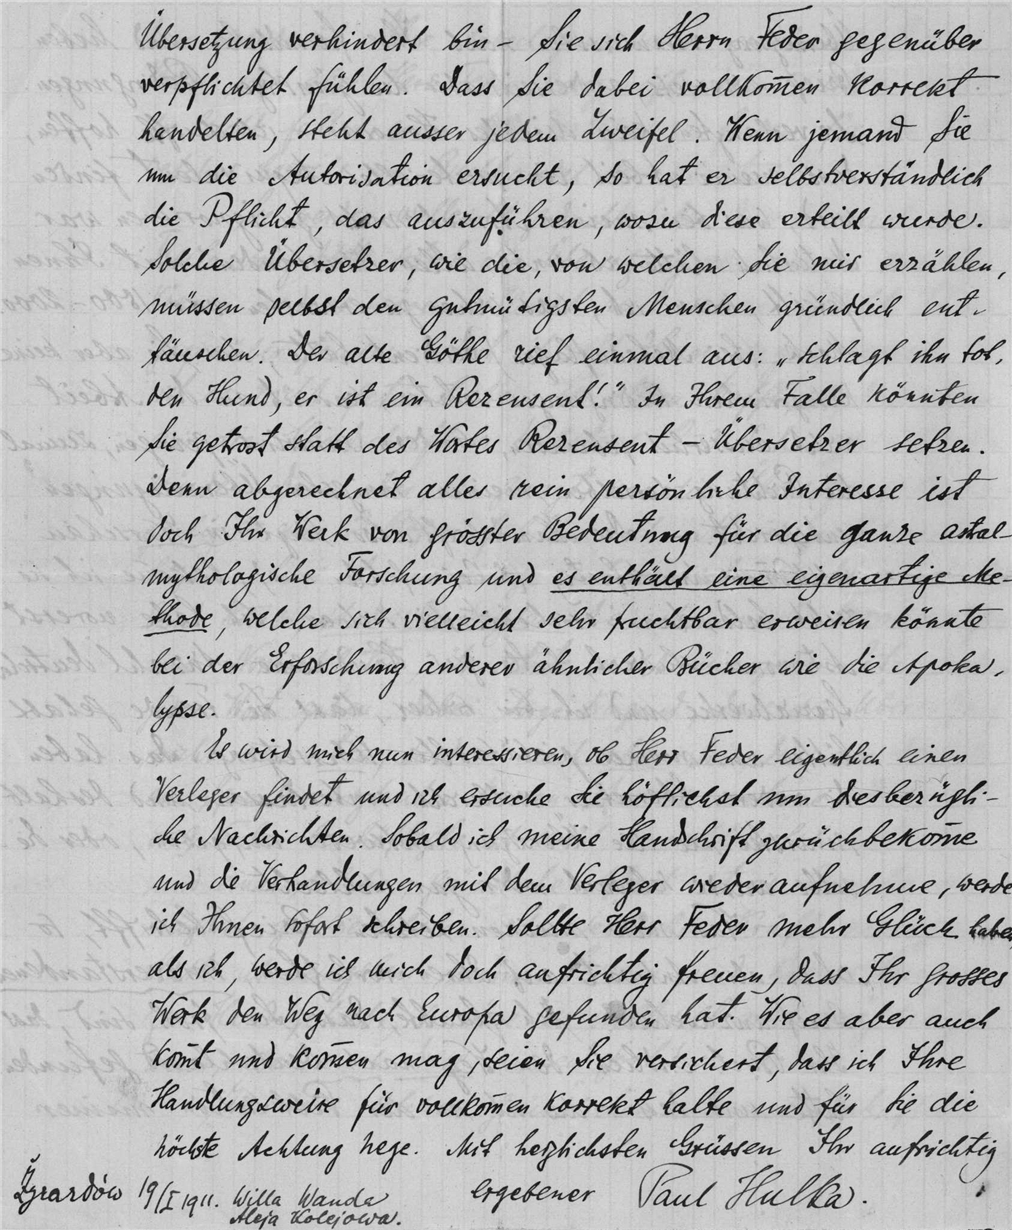 Übersetzung verhindert bin – Sie sich Herrn Feder gegenüber
verpflichtet fühlen. Dass Sie dabei vollkom̄en korrekt
handelten, steht ausser jedem Zweifel. Wenn jemand Sie
um die Autorisation ersucht, so hat er selbstverständlich
die Pflicht, das auszuführen, wozu diese erteilt wurde.
Solche Übersetzer, wie die, von welchen Sie mir erzählen,
müssen selbst den gutmütigsten Menschen gründlich ent-
täuschen. Der alte Göthe rief einmal aus: „Schlagt ihn tot,
den Hund, er ist ein Rezensent!" In Ihrem Falle könnten
Sie getrost statt des Wortes Rezensent – Übersetzer setzen.
Denn abgerechnet alles rein persönliche Interesse ist
doch Ihr Werk von grösster Bedeutung für die ganze astral-
mythologische Forschung und es enthält eine eigenartige Me-
thode, welche sich vielleicht sehr fruchtbar erweisen könnte
bei der Erforschung anderer ähnlicher Bücher wie die Apoka-
lypse.
Es wird mich nun interessieren, ob Herr Feder eigentlich einen
Verleger findet und ich ersuche Sie höflichst um diesbezügli-
che Nachrichten. Sobald ich meine Handschrift zurückbekom̄e
und die Verhandlungen mit dem Verleger wieder aufnehme, werde
ich Ihnen sofort schreiben. Sollte Herr Feder mehr Glück haben
als ich, werde ich mich doch aufrichtig freuen, dass Ihr grosses
Werk den Weg nach Europa gefunden hat. Wie es aber auch
kom̄t und kom̄en mag, seien Sie versichert, dass ich Ihre
Handlungsweise für vollkom̄en korrekt halte und für Sie die
höchste Achtung hege. Mit herzlichsten Grüssen Ihr aufrichtig
ergebener Paul Hulka.
Żyrardów 19/I 1911. Willa Wanda
Aleja Kolejowa.